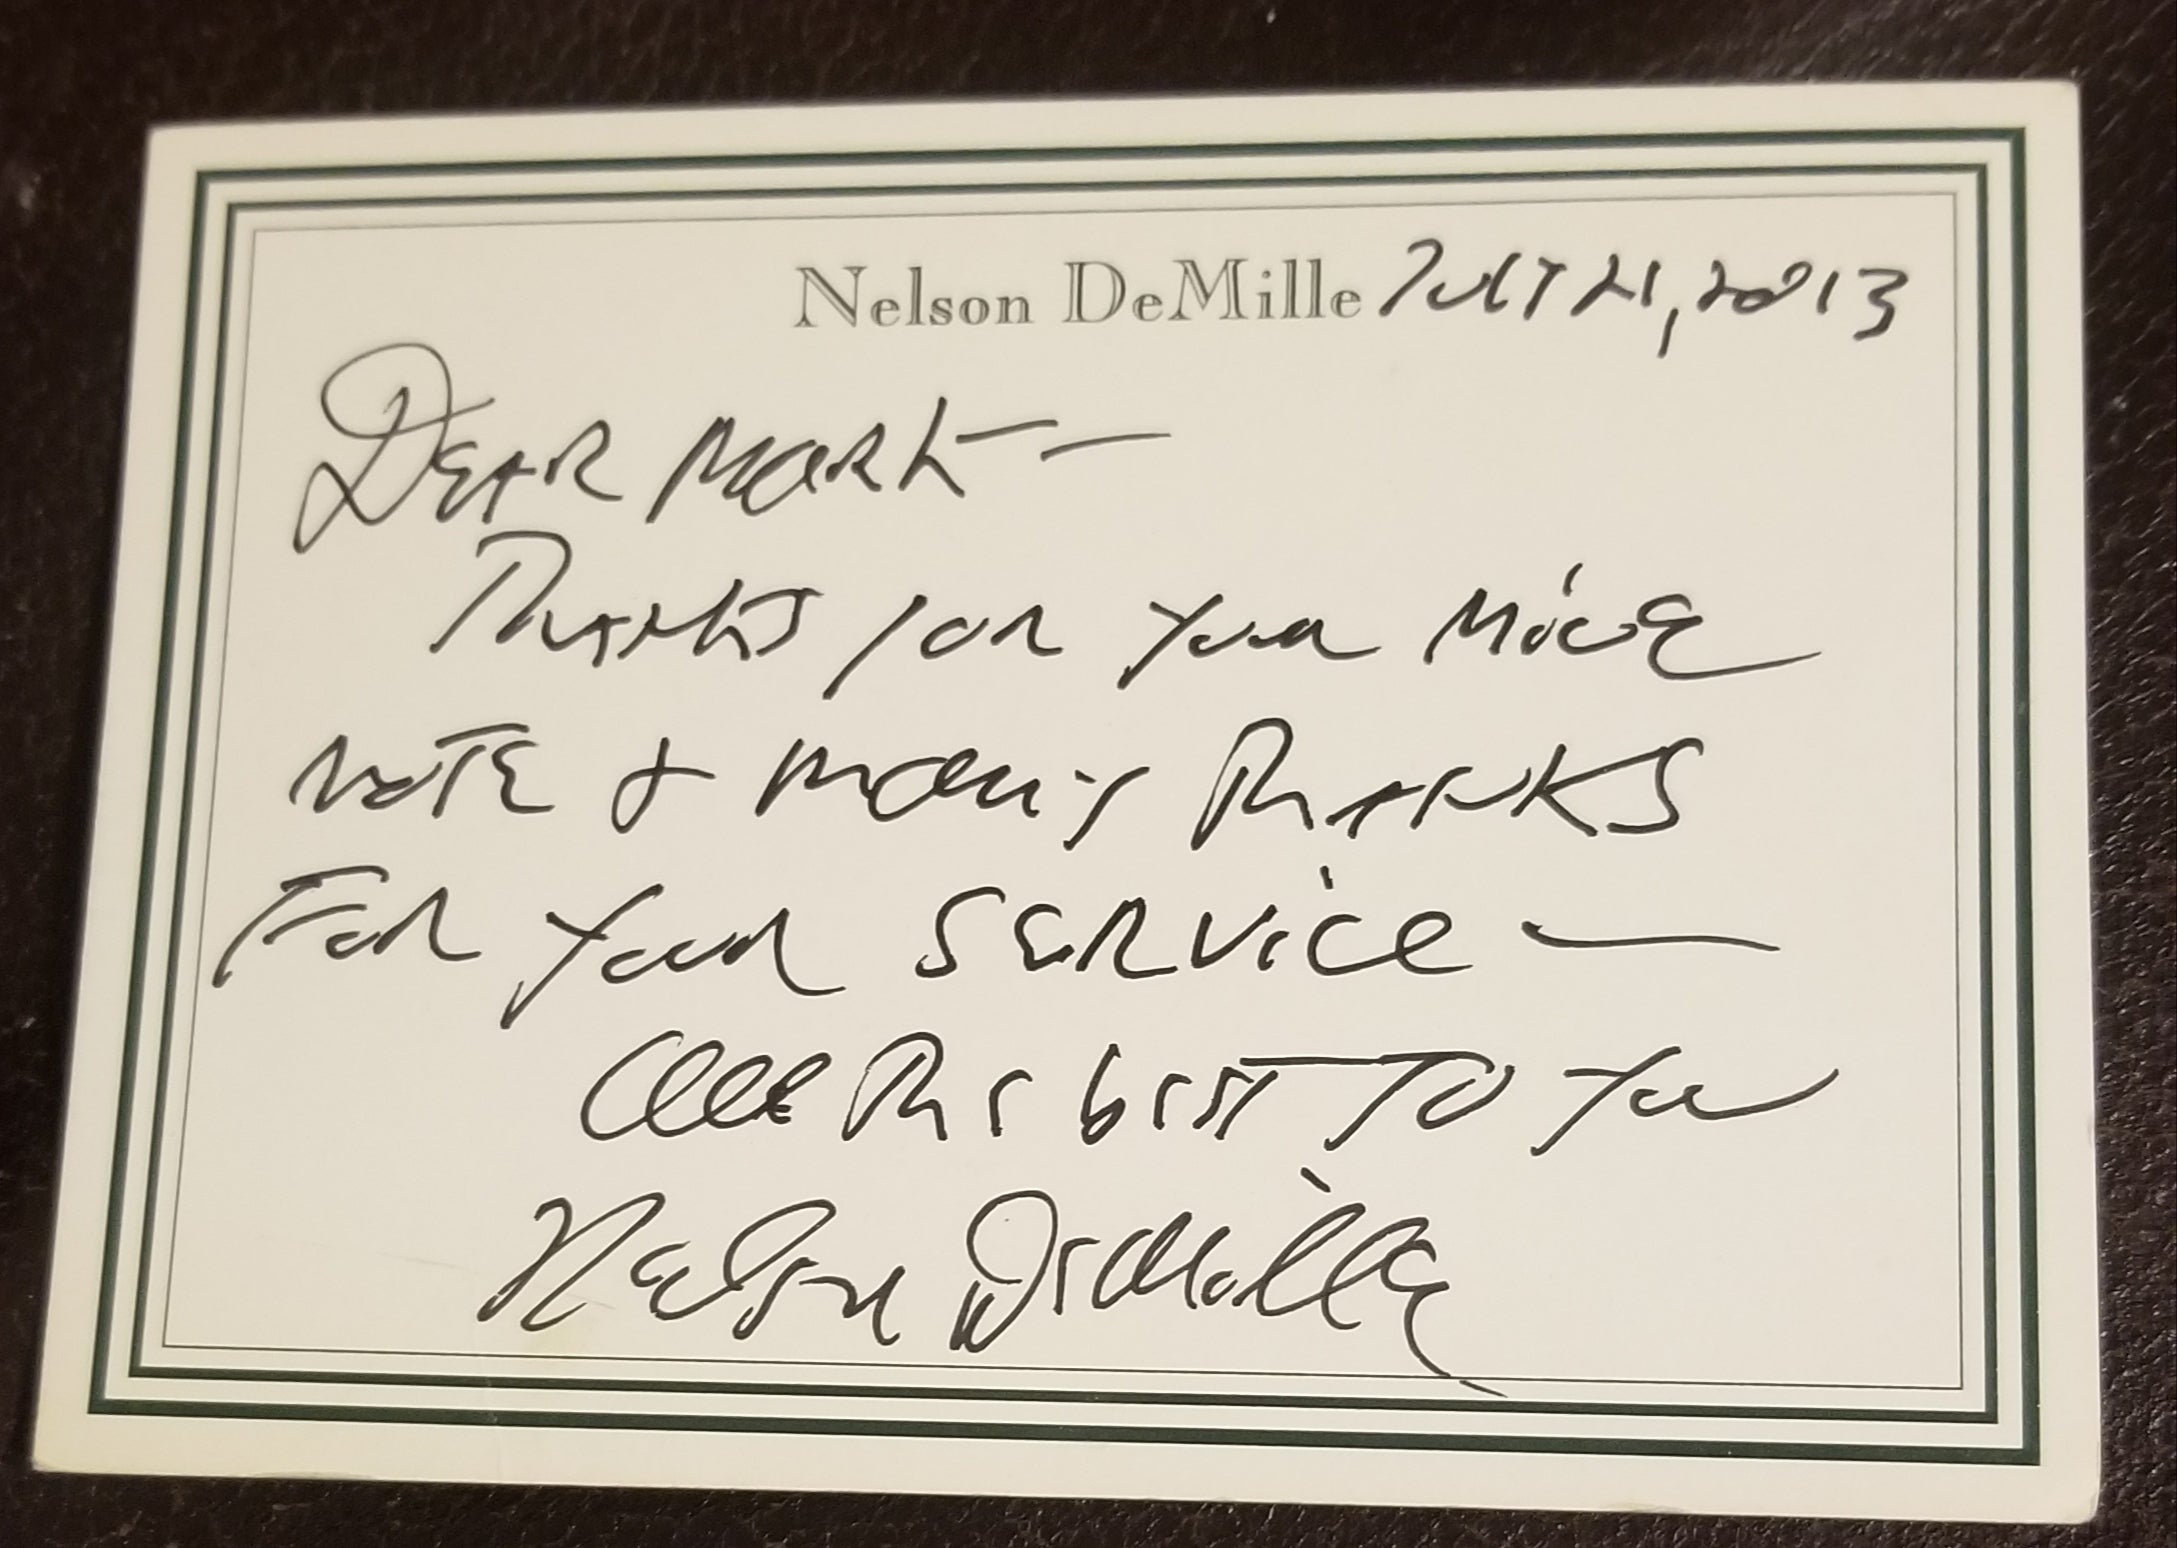 Nelson DeMille July 21, 2013
Dear Mark —
Thanks for your nice
note & many thanks
for your service —
All the best to you
Nelson DeMille